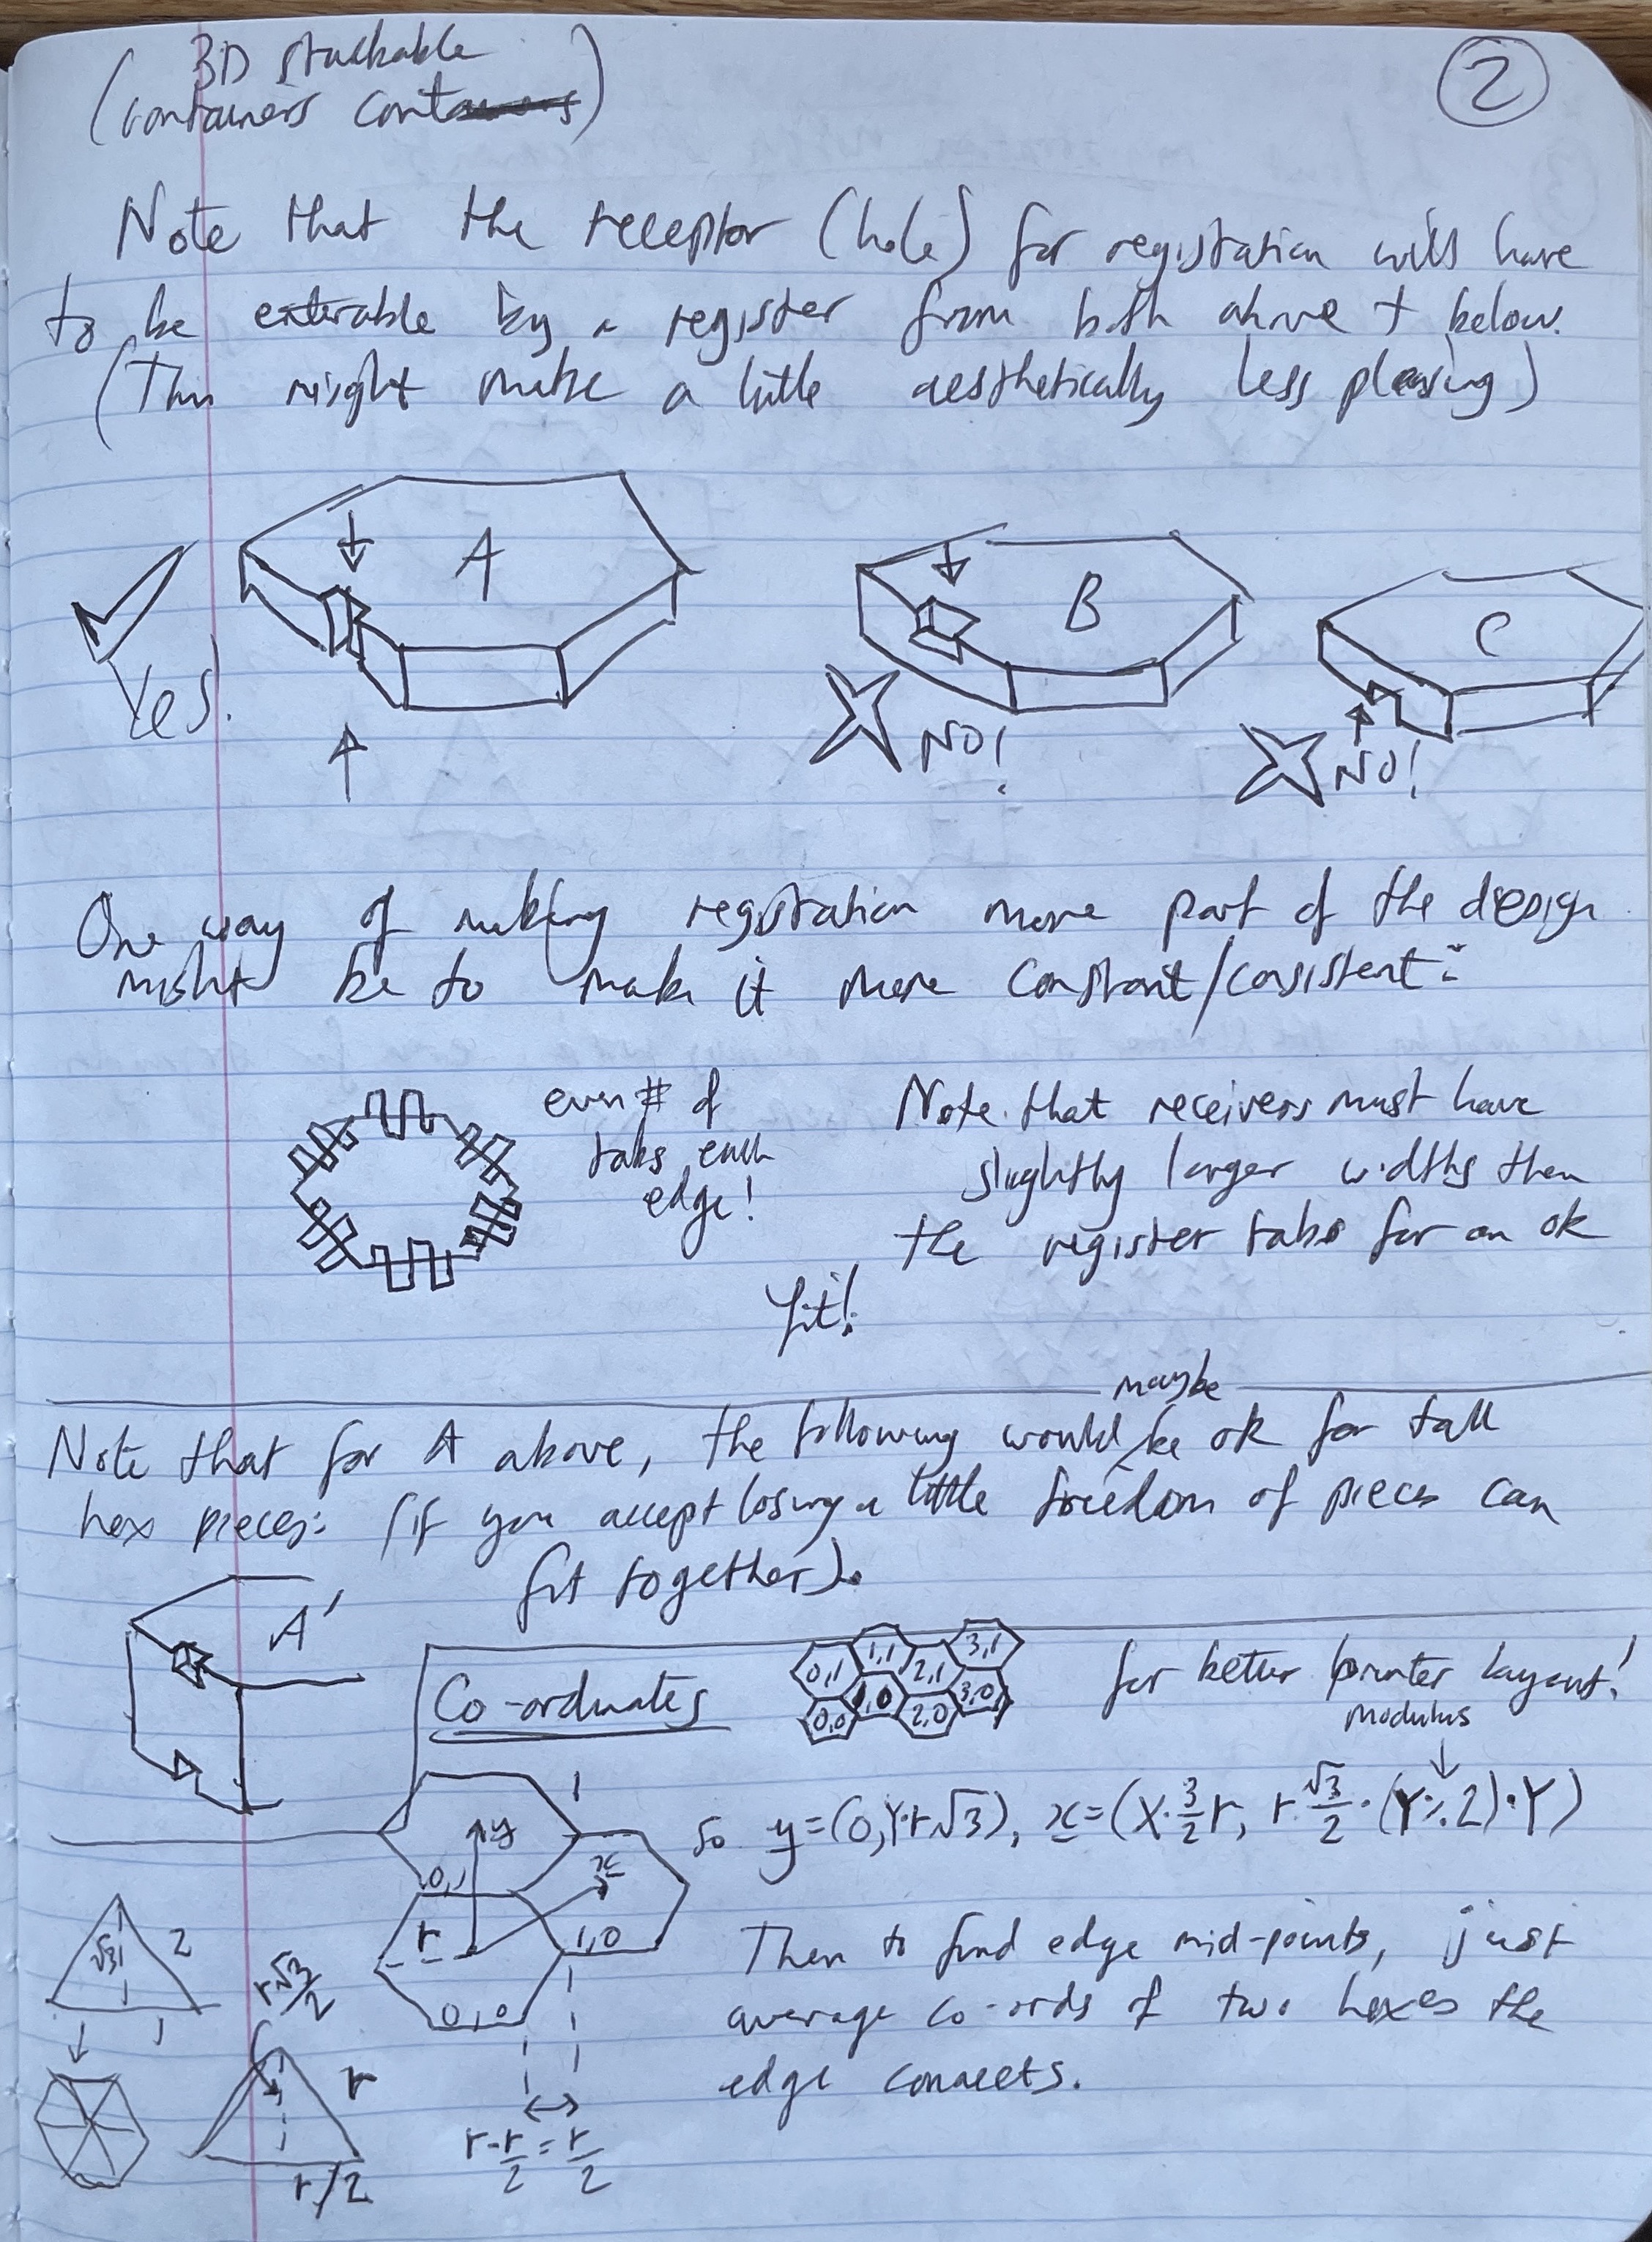 3D stackable
(containers conta
2
Note that the receptor (hole) for registration will have
to be enterable by a register from both above + below.
(This might make a little aesthetically less pleasing)
A
B
C
Yes.
NO!
NO!
One way of making registration more part of the design
might be to make it more constant/consistent:
even # of
tabs each
edge!
Note that receivers must have
slightly larger widths then
the register tabs for an ok
fit!
maybe
Note that for A above, the following would be ok for tall
hex pieces: (if you accept losing a little freedom of pieces can
fit together).
A'
Co-ordinates
0,1 1,1 2,1 3,1
0,0 1,0 2,0 3,0
for better printer layout!
modulus
so y=(0,Y·r√3), x=(X·3/2 r, r·√3/2·(Y%2)·Y)
y
x
0,1
r
1,0
0,0
Then to find edge mid-points, just
average co-ords of two hexes the
edge connects.
√3
2
1
r√3/2
r
r/2
r-r/2=r/2